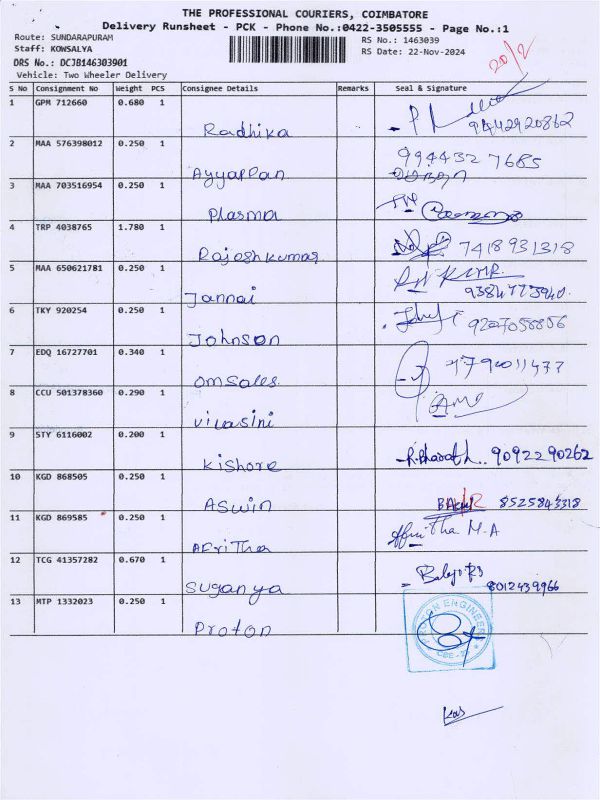 THE PROFESSIONAL COURIERS, COIMBATORE
Delivery Runsheet - PCK - Phone No.:0422-3505555 - Page No.:1
Route: SUNDARAPURAM
RS No.: 1463039
Staff: KOWSALYA
RS Date: 22-Nov-2024
20/2
DRS No.: DCJB146303901
Vehicle: Two Wheeler Delivery
S No Consignment No Weight PCS Consignee Details Remarks Seal & Signature
1 GPM 712660 0.680 1 Radhika 9442920862
2 MAA 576398012 0.250 1 Ayyappan 9944327685
3 MAA 703516954 0.250 1 Plasma
4 TRP 4038765 1.780 1 Rajeshkumar 7418931318
5 MAA 650621781 0.250 1 Jannai
6 TKY 920254 0.250 1 Johnson
7 EDQ 16727701 0.340 1 omsales
8 CCU 501378360 0.290 1 vilasini
9 STY 6116002 0.200 1 Kishore R.Bharath 9092290262
10 KGD 868505 0.250 1 Aswin 8525843318
11 KGD 869585 0.250 1 Afritha Afritha M.A
12 TCG 41357282 0.670 1 Suganya 8012439966
13 MTP 1332023 0.250 1 Proton
PROTON ENGINEERS